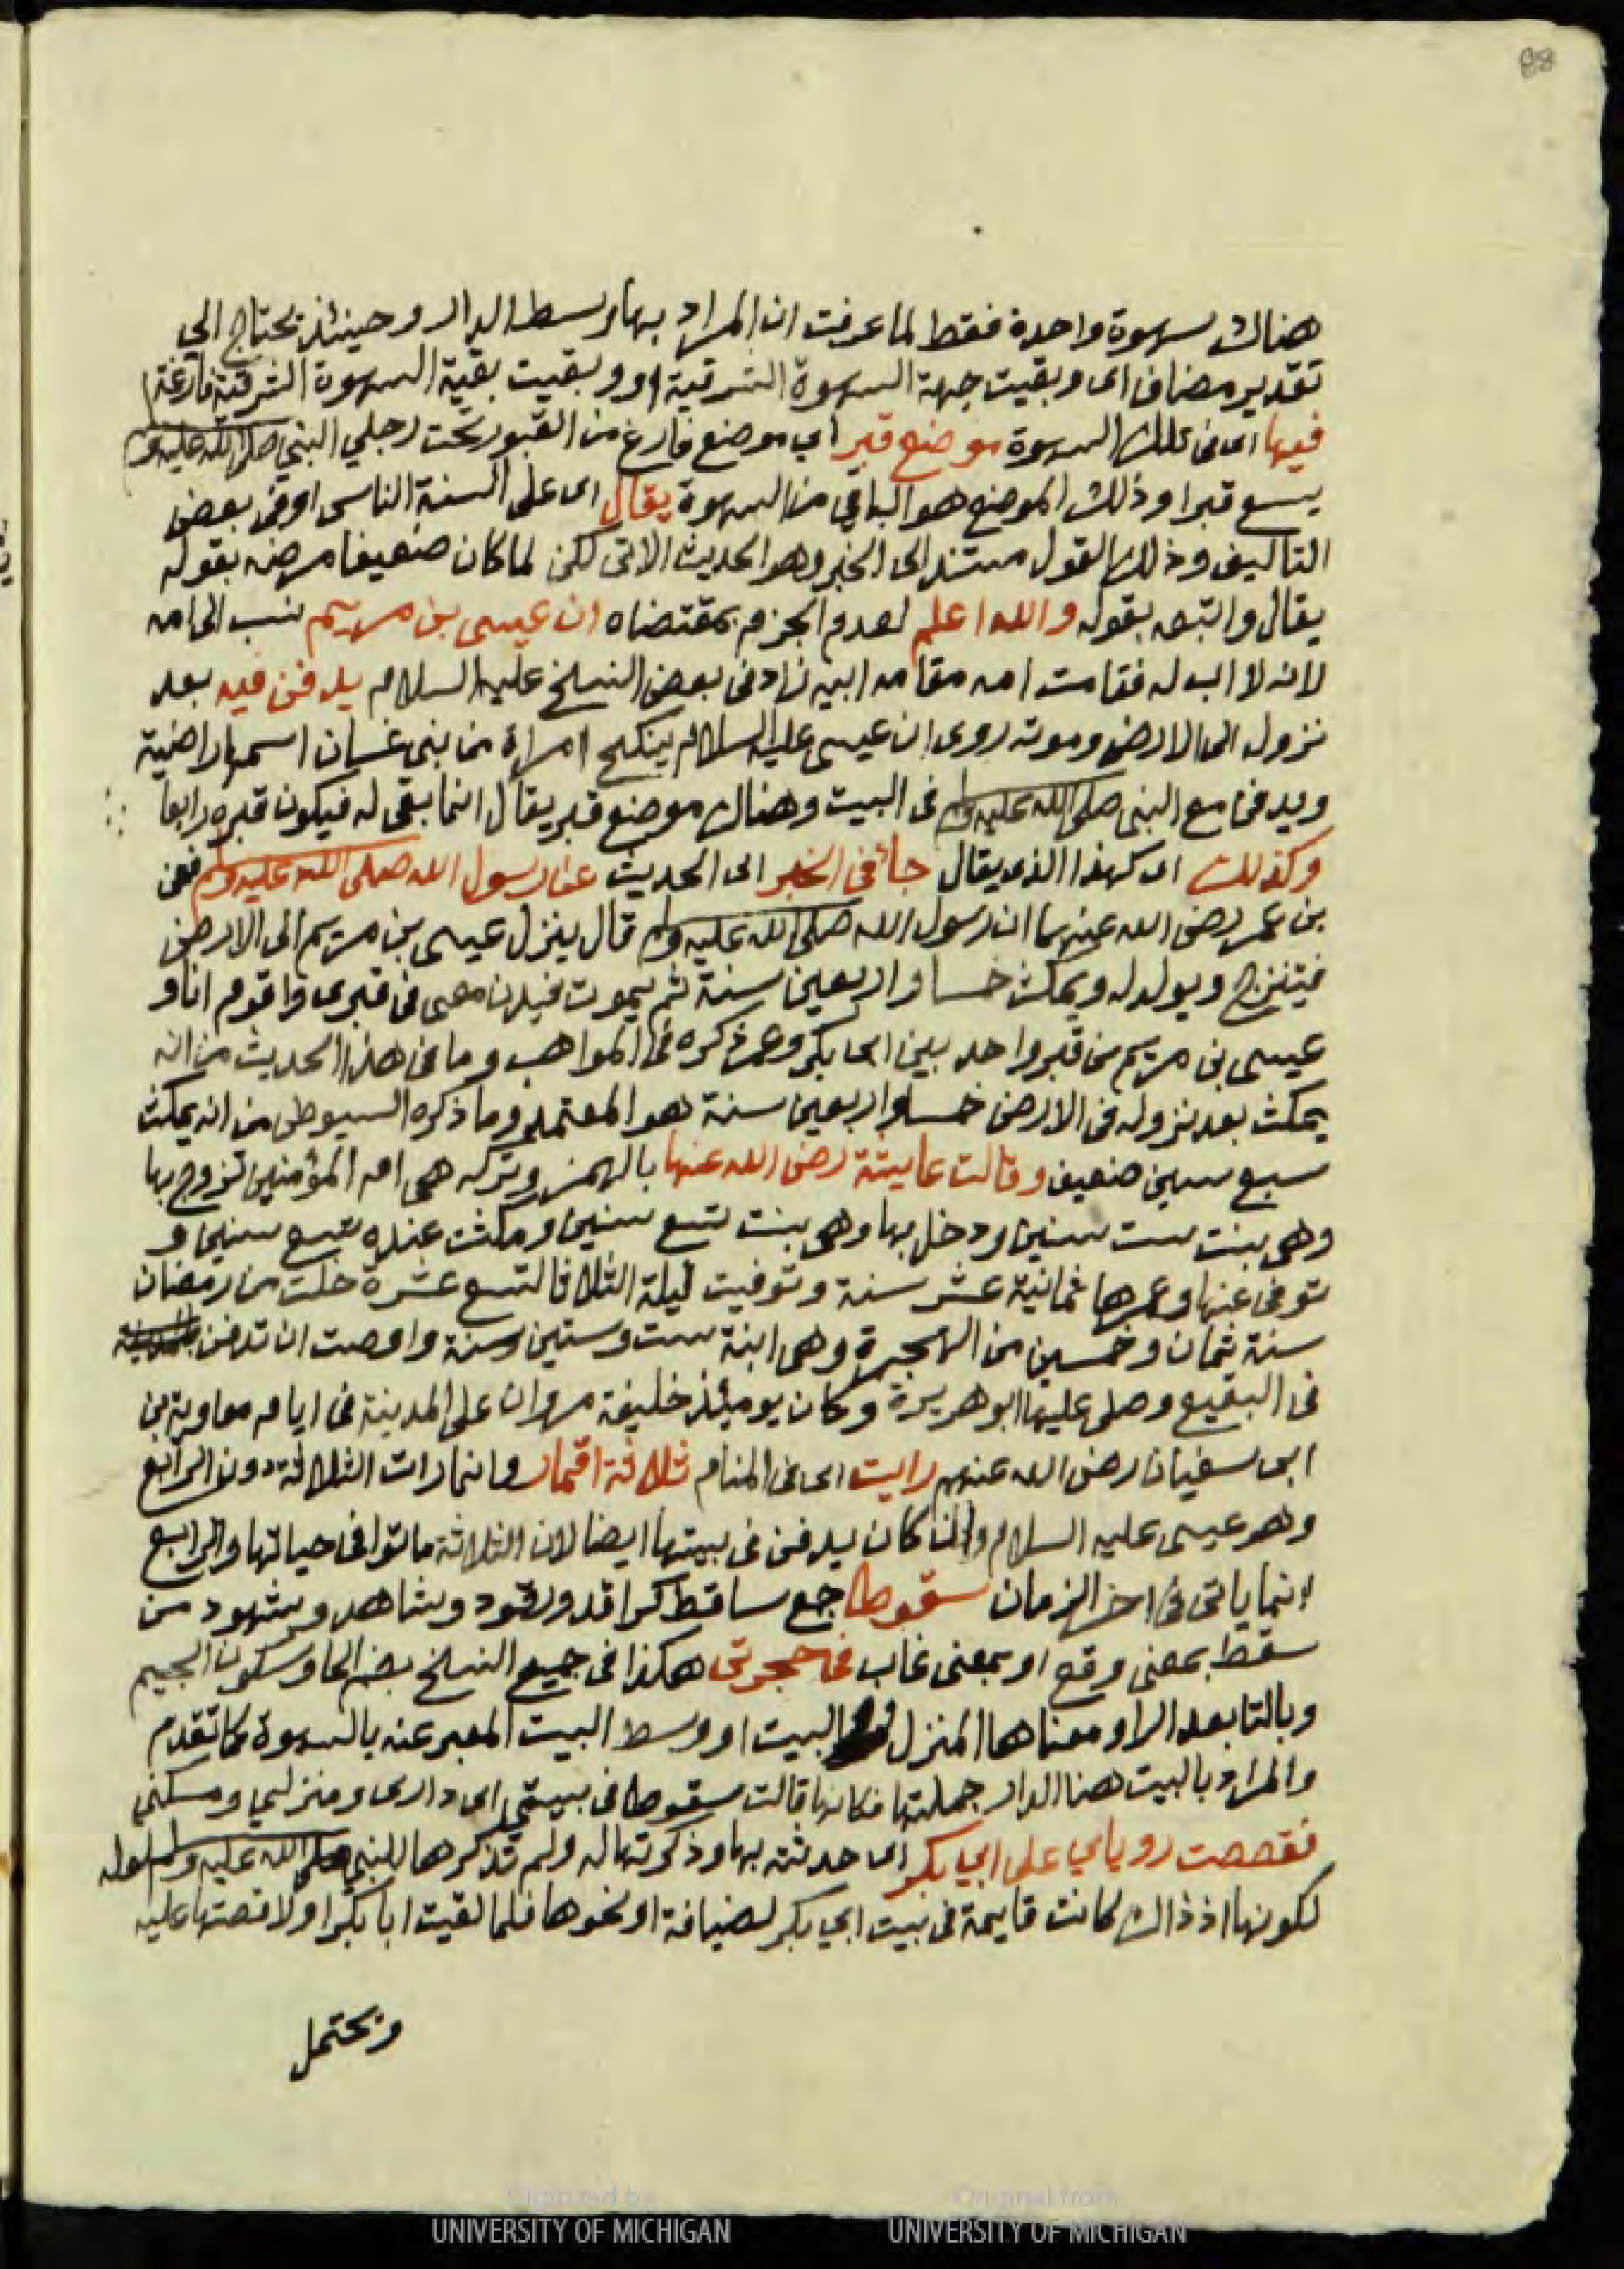 88
هناك سهوة واحدة فقط لما عرفت ان المراد بها وسط الدار وحينئذ يحتاج الي
تقدير مضاف اى وبقيت جهة السهوة الشرقية او وبقيت بقية السهوة الشرقية فارغة
فيها اى فى تلك السهوة موضع قبر اي موضع فارغ من القبور تحت رجلي النبي صلى الله عليه وسلم
يسع قبرا وذلك الموضع هو الباقي من السهوة يقال اى على السنة الناس او فى بعض
التاليف وذلك القول مستند الى الخبر وهو الحديث الاتى لكن لما كان ضعيفا مرضه بقوله
يقال واتبعه بقوله والله اعلم لعدم الجزم بمقتضاه ان عيسى بن مريم نسب الى امه
لانه لا اب له فقامت امه مقام ابيه زاد فى بعض النسخ عليه السلام يدفن فيه بعد
نزوله الى الارض وموته روى ان عيسى عليه السلام ينكح امراة من بنى غسان اسمها راضية
ويدفن مع النبى صلى الله عليه وسلم فى البيت وهناك موضع قبر يقال انما بقى له فيكون قبره رابعا
وكذلك اى كهذا الذى يقال جا فى الخبر اى الحديث عن رسول الله صلى الله عليه وسلم فعن
بن عمر رضى الله عنهما ان رسول الله صلى الله عليه وسلم قال ينزل عيسى بن مريم الى الارض
فيتزوج ويولد له ويمكث خمسا واربعين سنة ثم يموت فيدفن معى فى قبرى واقوم انا و
عيسى بن مريم من قبر واحد بين ابى بكر وعمر ذكره فى المواهب وما فى هذا الحديث من انه
يمكث بعد نزوله فى الارض خمسا واربعين سنة هو المعتمد وما ذكره السيوطى من انه يمكث
سبع سنين ضعيف وقالت عايشة رضى الله عنها بالهمز وتركه هى ام المؤمنين تزوج بها
وهى بنت ست سنين ودخل بها وهى بنت تسع سنين ومكثت عنده تسع سنين و
توفى عنها وعمرها ثمانية عشر سنة وتوفيت ليلة الثلاثا لتسع عشرة خلت من رمضان
سنة ثمان وخمسين من الهجرة وهى ابنة ست وستين سنة واوصت ان تدفن
فى البقيع وصلى عليها ابو هريرة وكان يوميئذ خليفة مروان على المدينة فى ايام معاوية بن
ابى سفيان رضى الله عنهم رايت اى فى المنام ثلاثة اقمار وانما رات الثلاثة دون الرابع
وهو عيسى عليه السلام وان كان يدفن فى بيتها ايضا لان الثلاثة ماتوا فى حياتها والرابع
انما ياتى فى اخر الزمان سقوطا جمع ساقط كراقد ورقود وشاهد وشهود من
سقط بمعنى وقع او بمعنى غاب فى حجرتى هكذا فى جميع النسخ بضم الحا وسكون الجيم
وبالتا بعد الرا ومعناها المنزل والبيت او وسط البيت المعبر عنه بالسهوة كما تقدم
والمراد بالبيت هنا الدار جملتها فكانها قالت سقوطا فى بيتي اى دارى ومنزلي ومسكنى
فقصصت روياي على ابي بكر اى حدثته بها وذكرتها له ولم تذكرها للنبي صلى الله عليه وسلم
لكونها اذ ذاك كانت قايمة فى بيت ابي بكر لضيافة او نحوها فلما لقيت ابا بكر اولا قصتها عليه
ويحتمل
Digitized by
UNIVERSITY OF MICHIGAN
Original from
UNIVERSITY OF MICHIGAN